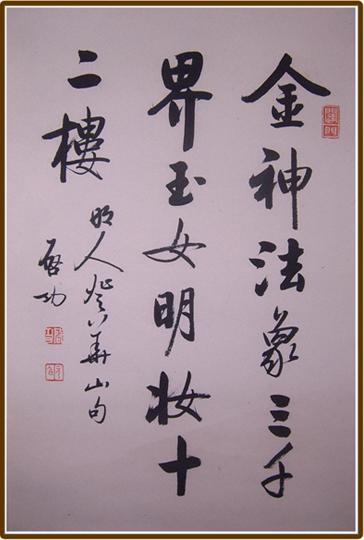 金神法象三千
界玉女明妆十
二樓
明人登华山句
启功